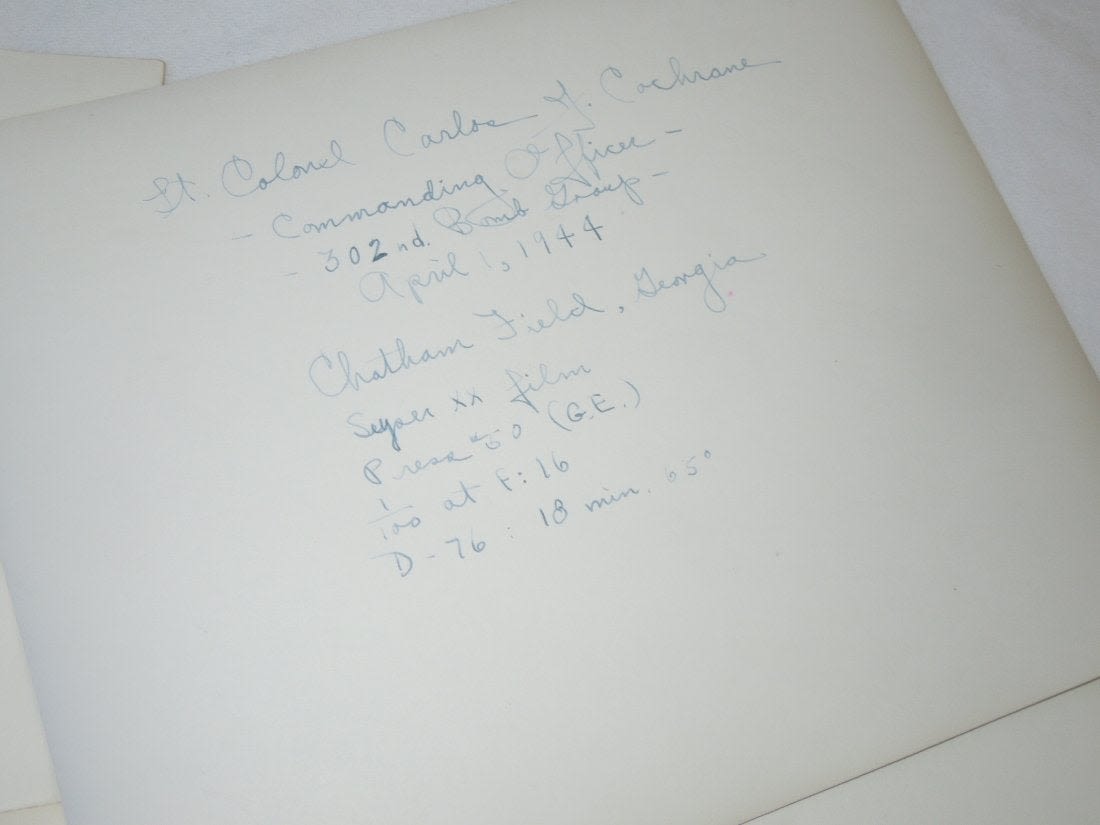 Lt. Colonel Carlos J. Cochrane
- Commanding Officer -
- 302nd. Bomb Group -
April 1, 1944
Chatham Field, Georgia
Super XX film
Press #50 (G.E.)
1/100 at F:16
D-76: 18 min. 65°